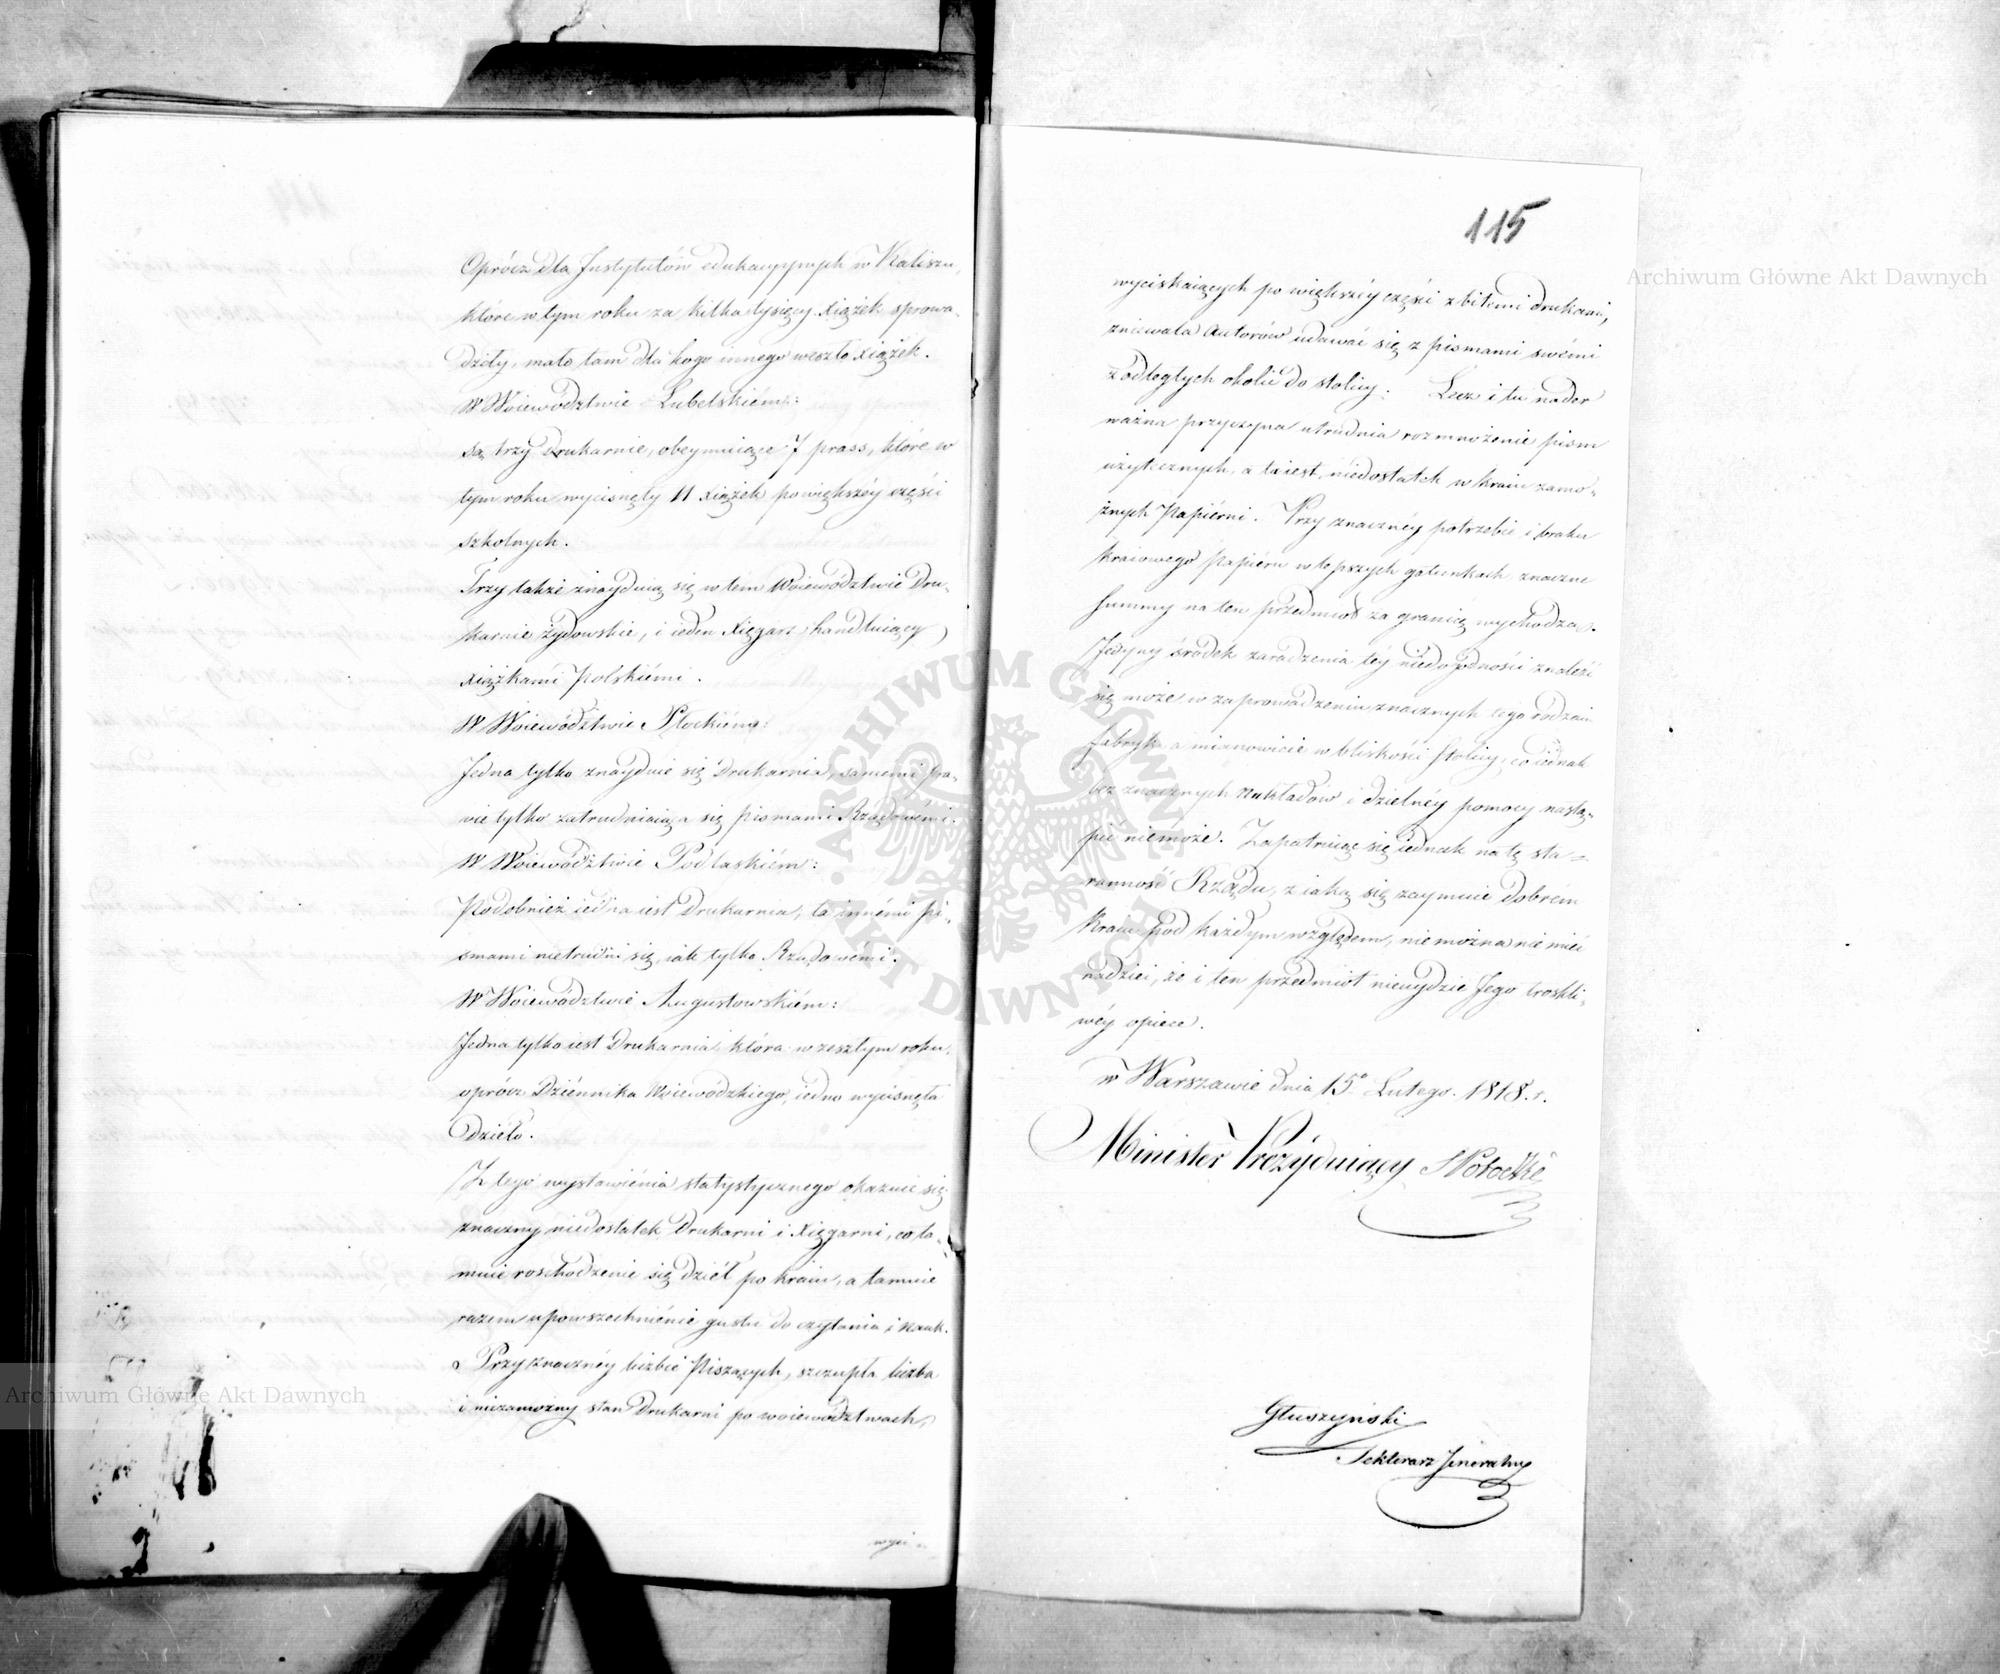 Oprócz dla Instytutów edukacyynych w Kaliszu,
które w tym roku za kilka tysięcy xiążek sprowa-
dziły, mało tam dla kogo innego weszło xiążek.
W Woiewództwie Lubelskiém:
są trzy Drukarnie, obeymuiące 7 prass, które w
tym roku wycisnęły 11 xiążek po większéy części
szkolnych.
Trzy także znayduią się w tém Woiewództwie Dru-
karnie żydowskie, i ieden Xięgarz handluiący
xiążkami Polskiémi.
W Woiewództwie Płockiém:
Jedna tylko znayduie się Drukarnia, samemi pra-
wie tylko zatrudniaiąca się pismami Rządowémi.
W Woiewództwie Podlaskiém:
Podobnież iedna iest Drukarnia, ta innémi pi-
smami nietrudni się, iak tylko Rządowémi.
W Woiewództwie Augustowskiém:
Jedna tylko iest Drukarnia, która w zeszłym roku,
oprócz Dziénnika Woiewódzkiego, iedno wycisnęła
Dzieło.
Z tego wystawiénia statystycznego okazuie się
znaczny niedostatek Drukarni i Xięgarni, co ta-
muie roschodzenie się dzieł po kraiu, a tamuie
razem upowszechniénie gustu do czytania i Nauk.
Przy znacznéy liczbie Piszących, szczupła liczba
i niezamożny stan Drukarni po woiewództwach,
wyci-
115
wyciskaiących po większéy części zbitemi drukami,
zniewala Autorów udawać się z pismami swémi
z odległych okolic do stolicy. Lecz i tu nader
ważna przyczyna utrudnia rozmnożenie pism
użytecznych, a ta iest, niedostatek w kraiu zamo-
żnych Papiérni. Przy znacznéy potrzebie i braku
kraiowego Papiéru w lepszych gatunkach znaczne
summy na ten przedmiot za granicę wychodzą.
Jedyny środek zaradzenia téy niedogodności znaleźć
się może w zaprowadzeniu znacznych tego rodzaiu
fabryk, a mianowicie w bliskości stolicy, co iednak
bez znacznych nakładów i dzielnéy pomocy nastą-
pić niemoże. Zapatruiąc się iednak na tę sta-
ranność Rządu, z iaką się zaymuie dobrém
Kraiu pod każdym względem, nie można nie mieć
nadziei, że i ten przedmiot nieuydzie Jego troskli-
wéy opiece.
w Warszawie dnia 15º Lutego 1818. r.
Minister Prezyduiący S Potocki
Głuszyński
Sekretarz Jeneralny
Archiwum Główne Akt Dawnych
Archiwum Główne Akt Dawnych
ARCHIWUM GŁÓWNE AKT DAWNYCH